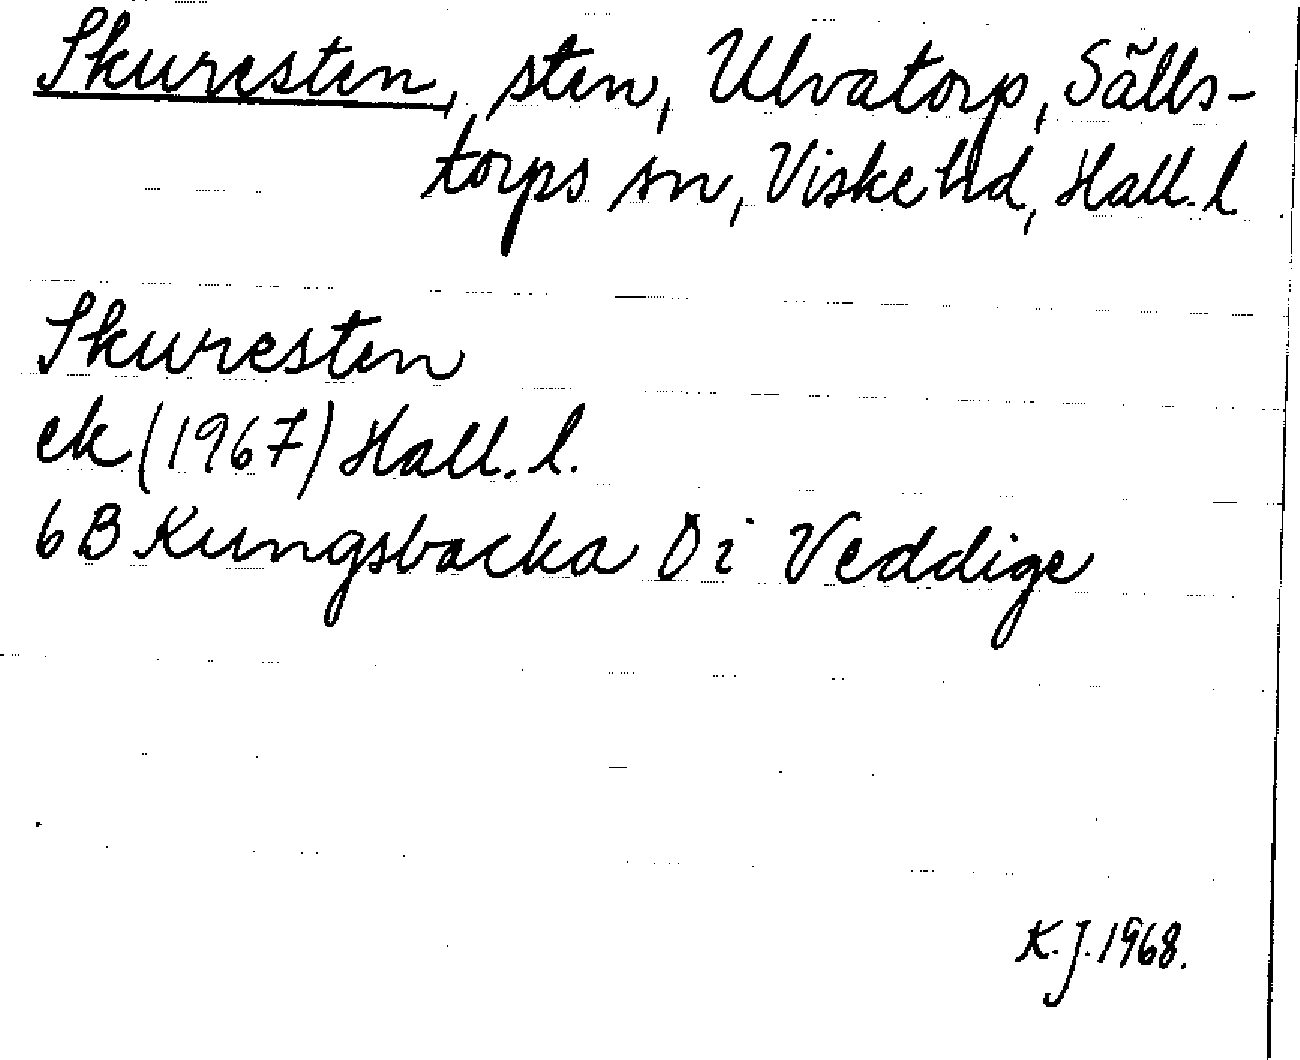 Skuresten, sten, Ulvatorp, Sälls-
torps sn, Viske hd, Hall. l
Skuresten
ek (1967) Hall. l.
6B Kungsbacka 0 i Veddige
K.J. 1968.